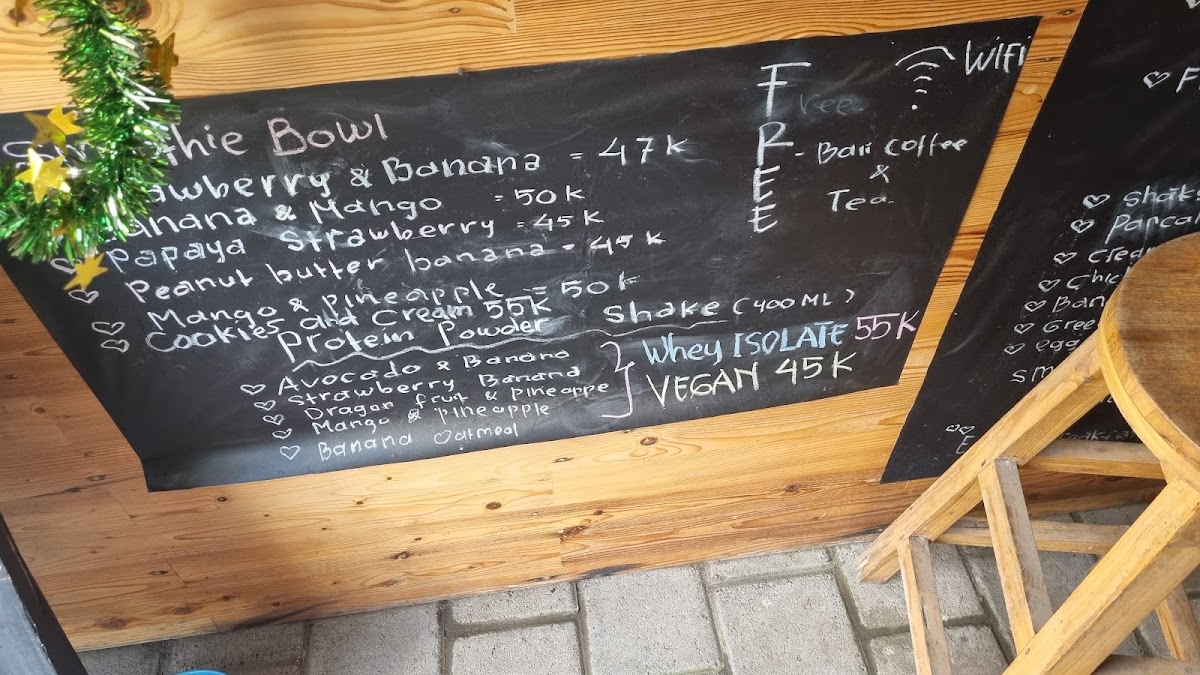 Smoothie Bowl
Strawberry & Banana = 47K
Banana & Mango = 50K
Papaya Strawberry = 45K
Peanut butter banana = 45K
Mango & Pineapple = 50K
Cookies and Cream 55K
Protein Powder Shake (400 ML)
Avocado & Banana
Strawberry Banana
Dragon fruit & pineappe
Mango & pineapple
Banana Oatmeal
Whey ISOLATE 55K
VEGAN 45K
FREE
Free WiFi
- Bali coffee
&
Tea
Shak
Panca
Crea
Chic
Ban
Gree
egg
Sm